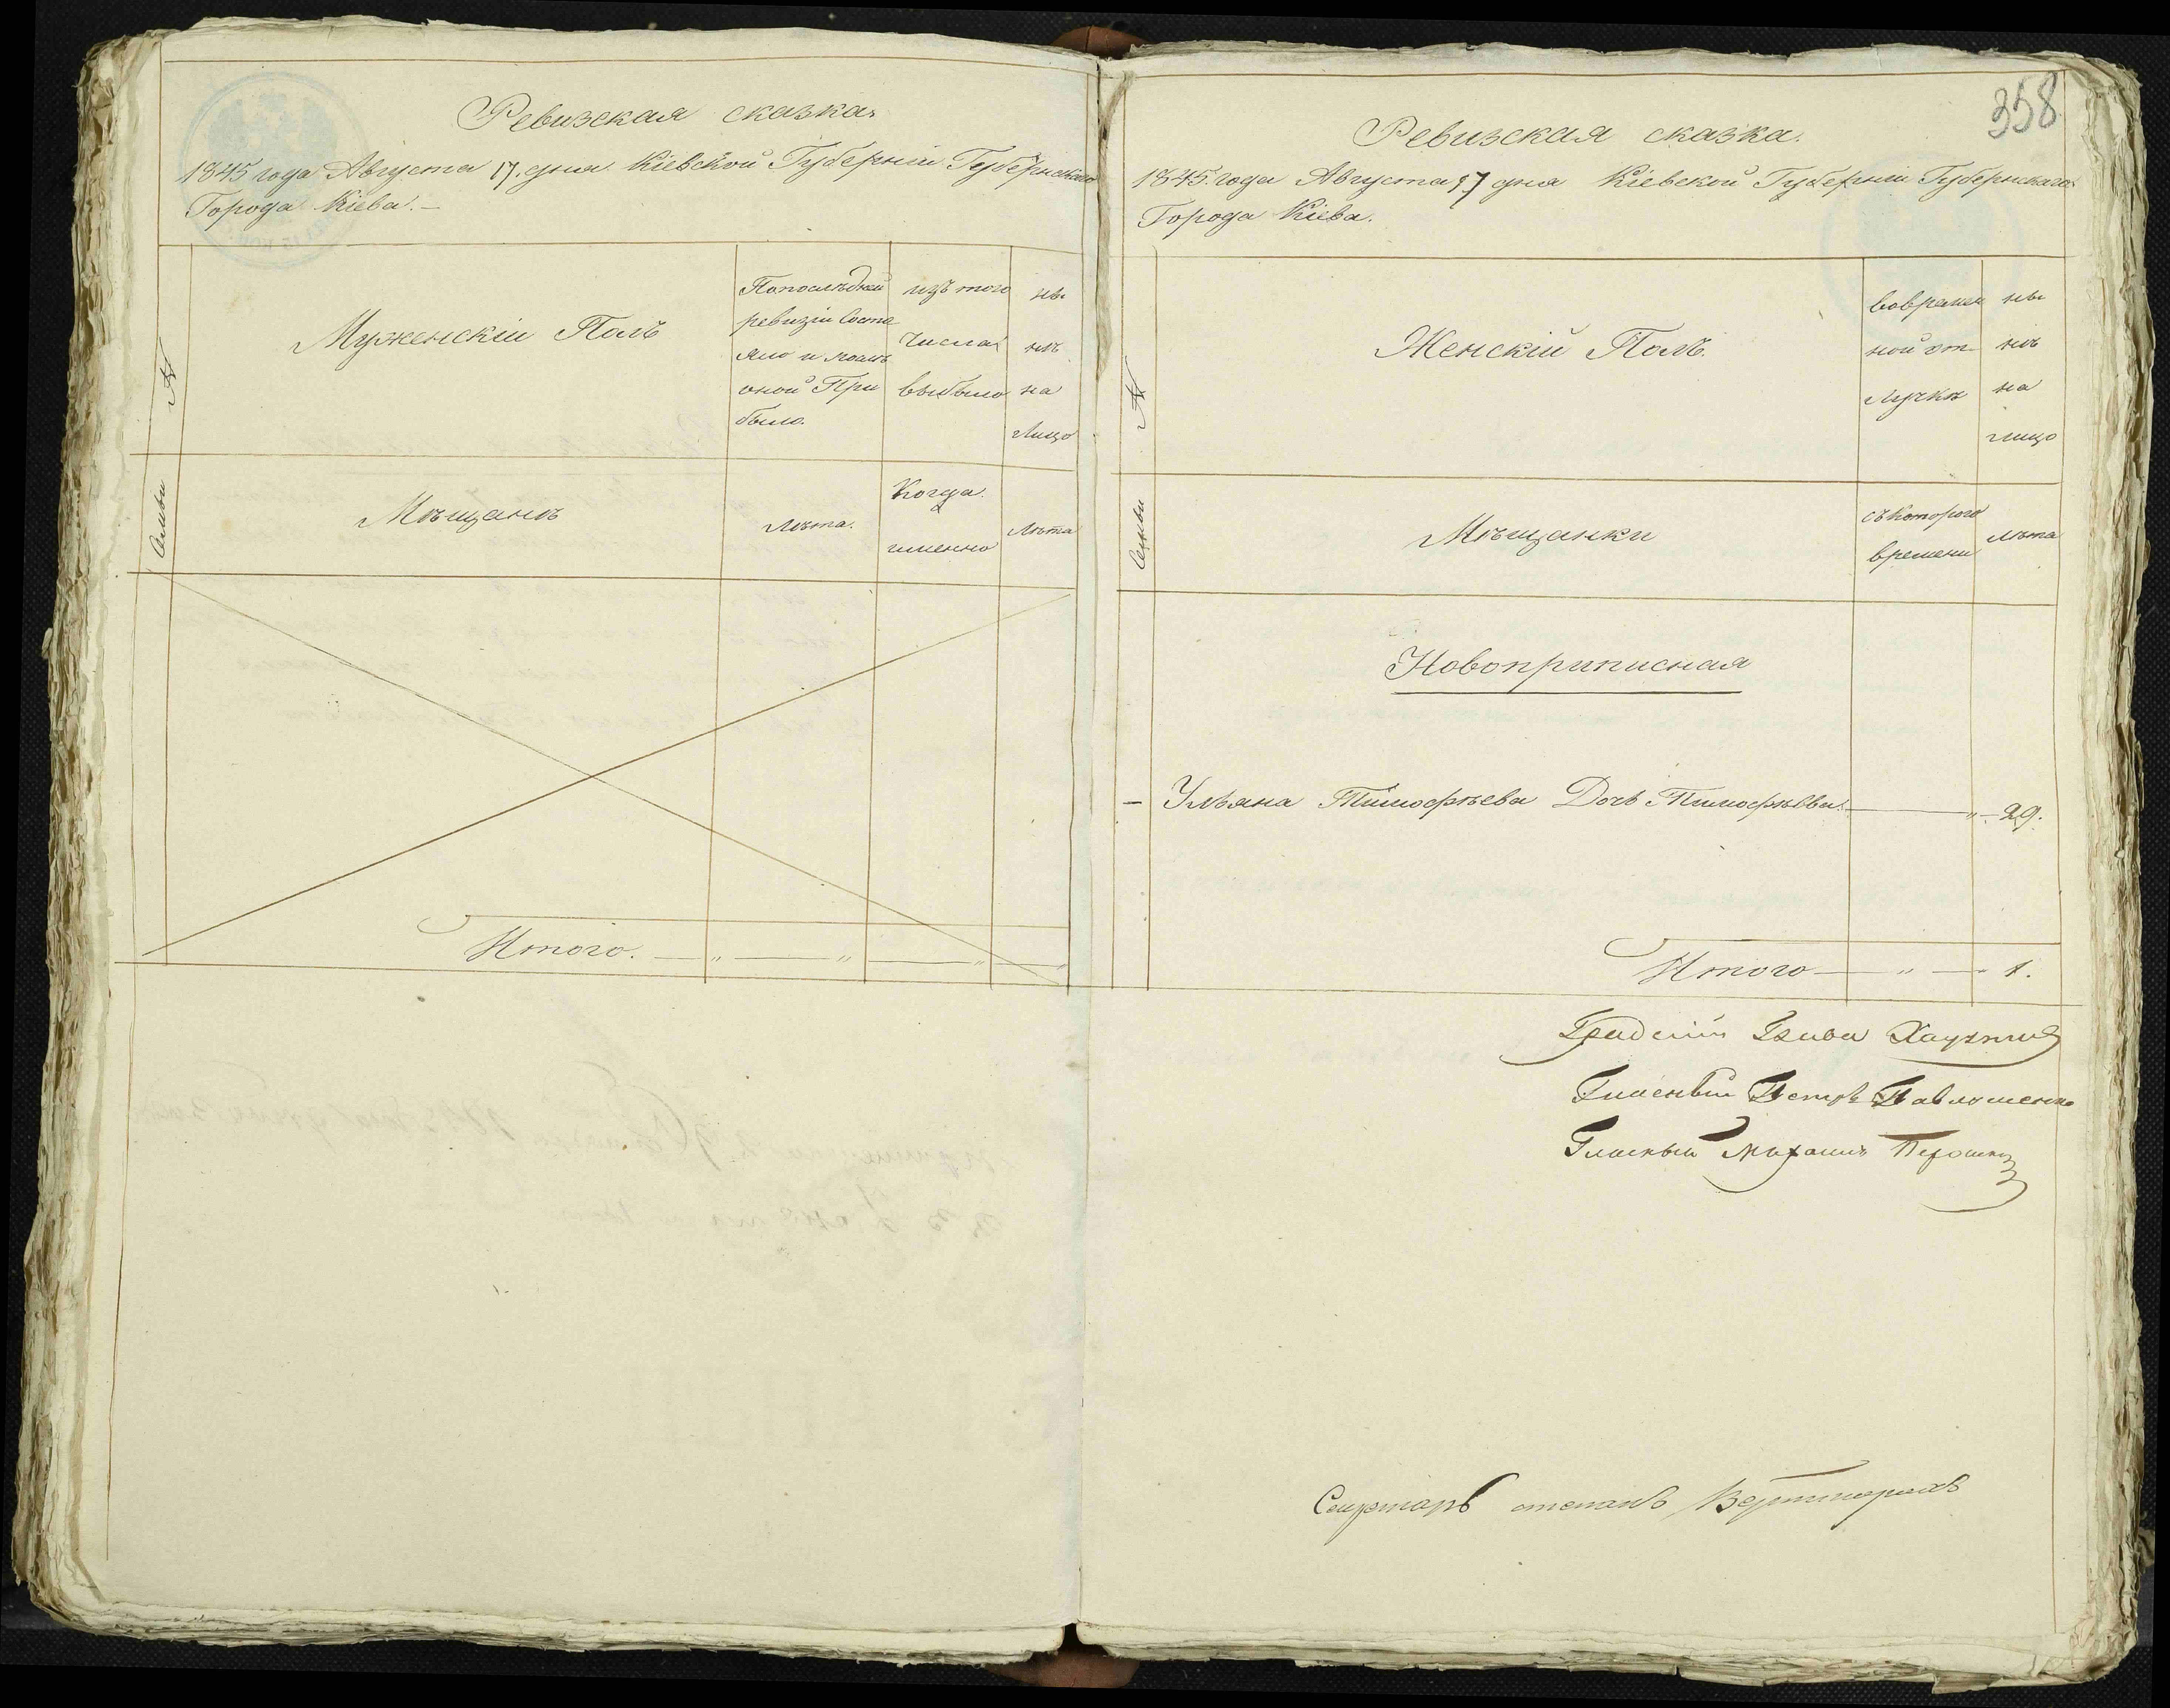 Ревизская сказка
1845 года Августа 17. дня Кіевской Губерніи Губернскаго
Города Кіева. —
№
Семьи
Мужескій Полъ
Попослѣдней
ревизіи Состо
яло и послѣ
оной При
было.
изъ того
числа
выбыло
ны
нѣ
на
Лицо
Мѣщанъ
Лѣта.
Когда
именно
Лѣта
Итого. — „ — „ — „ — „
358
Ревизская сказка.
1845. года Августа 17 дня Кіевской Губерніи Губернскаго
Города Кіева.
№
Семьи
Женскій Полъ.
вовремен
ной от-
лучкѣ
ны
нѣ
на
лицо
Мѣщанки
съ котораго
времени
лѣта
Новоприписная
— Ульяна Тимофѣева Дочь Тимофѣева. — „ — 29.
Итого — „ — 1.
Градскій Глава
Гласный Петръ
Гласный Михаилъ
Секретарь степанъ